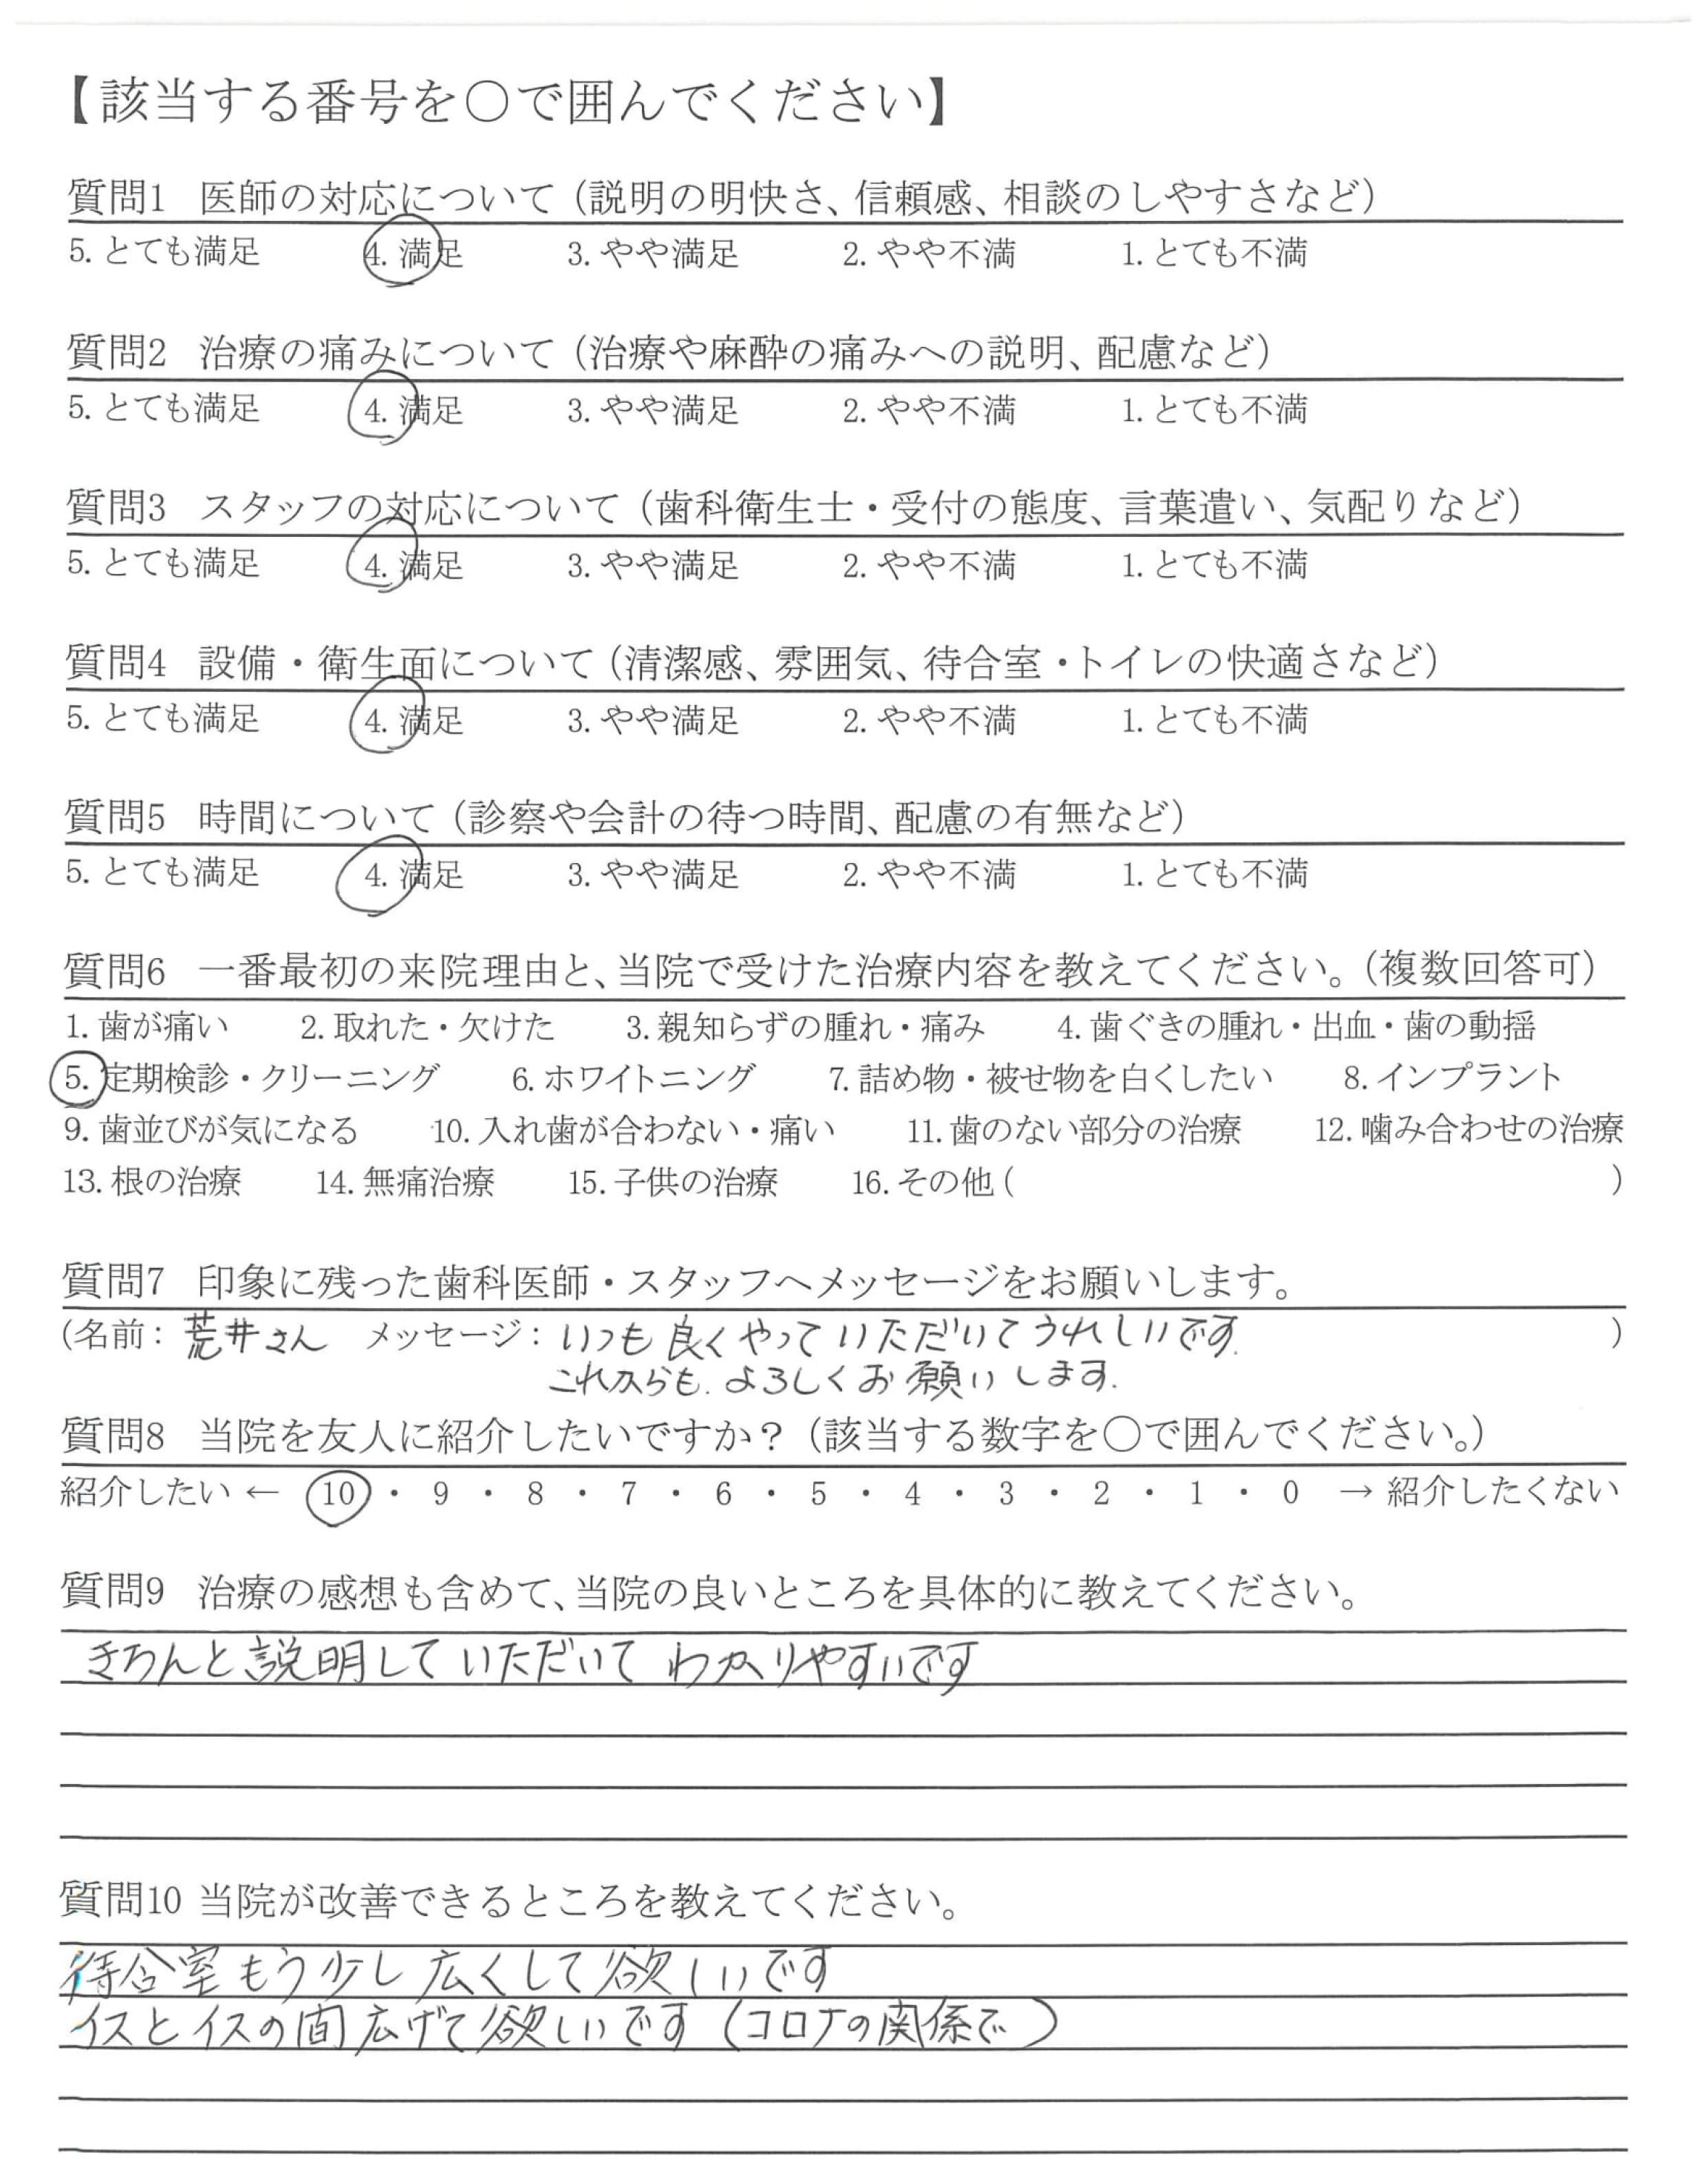 【該当する番号を〇で囲んでください】
質問1 医師の対応について（説明の明快さ、信頼感、相談のしやすさなど）
5. とても満足 4. 満足 3. やや満足 2. やや不満 1. とても不満
質問2 治療の痛みについて（治療や麻酔の痛みへの説明、配慮など）
5. とても満足 4. 満足 3. やや満足 2. やや不満 1. とても不満
質問3 スタッフの対応について（歯科衛生士・受付の態度、言葉遣い、気配りなど）
5. とても満足 4. 満足 3. やや満足 2. やや不満 1. とても不満
質問4 設備・衛生面について（清潔感、雰囲気、待合室・トイレの快適さなど）
5. とても満足 4. 満足 3. やや満足 2. やや不満 1. とても不満
質問5 時間について（診察や会計の待つ時間、配慮の有無など）
5. とても満足 4. 満足 3. やや満足 2. やや不満 1. とても不満
質問6 一番最初の来院理由と、当院で受けた治療内容を教えてください。（複数回答可）
1. 歯が痛い 2. 取れた・欠けた 3. 親知らずの腫れ・痛み 4. 歯ぐきの腫れ・出血・歯の動揺
5. 定期検診・クリーニング 6. ホワイトニング 7. 詰め物・被せ物を白くしたい 8. インプラント
9. 歯並びが気になる 10. 入れ歯が合わない・痛い 11. 歯のない部分の治療 12. 噛み合わせの治療
13. 根の治療 14. 無痛治療 15. 子供の治療 16. その他（ ）
質問7 印象に残った歯科医師・スタッフへメッセージをお願いします。
（名前：荒井さん メッセージ：いつも良くやっていただいてうれしいです. ）
これからも.よろしくお願いします.
質問8 当院を友人に紹介したいですか？（該当する数字を〇で囲んでください。）
紹介したい ← 10 ・ 9 ・ 8 ・ 7 ・ 6 ・ 5 ・ 4 ・ 3 ・ 2 ・ 1 ・ 0 → 紹介したくない
質問9 治療の感想も含めて、当院の良いところを具体的に教えてください。
きちんと説明していただいて わかりやすいです
質問10 当院が改善できるところを教えてください。
待合室もう少し広くして欲しいです
イスとイスの間広げて欲しいです（コロナの関係で）